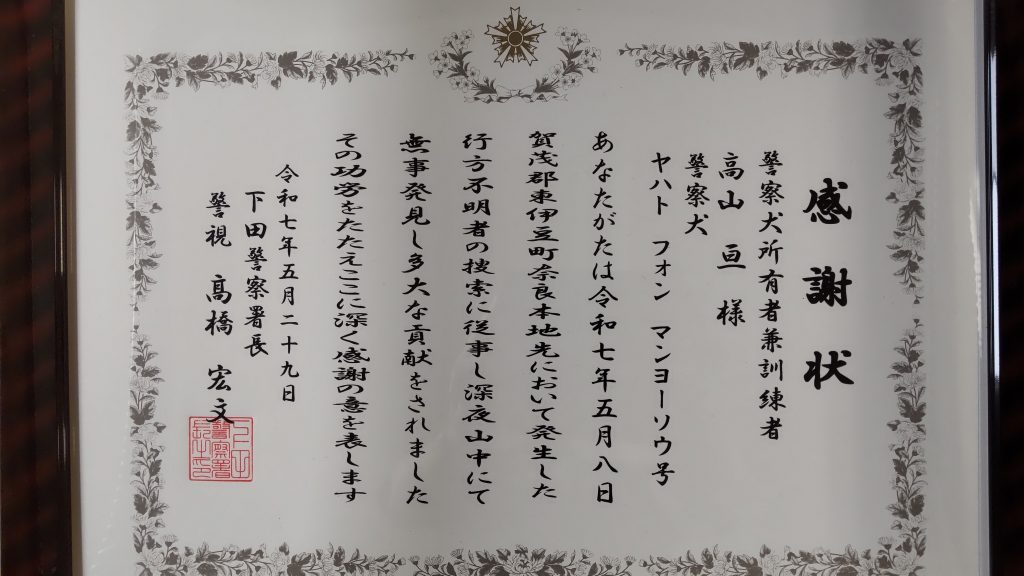 感謝状
警察犬所有者兼訓練者
高山 亘 様
警察犬
ヤハト フォン マンヨーソウ号
あなたがたは令和七年五月八日
賀茂郡東伊豆町奈良本地先において発生した
行方不明者の捜索に従事し深夜山中にて
無事発見し多大な貢献をされました
その功労をたたえここに深く感謝の意を表します
令和七年五月二十九日
下田警察署長
警視 髙橋 宏文